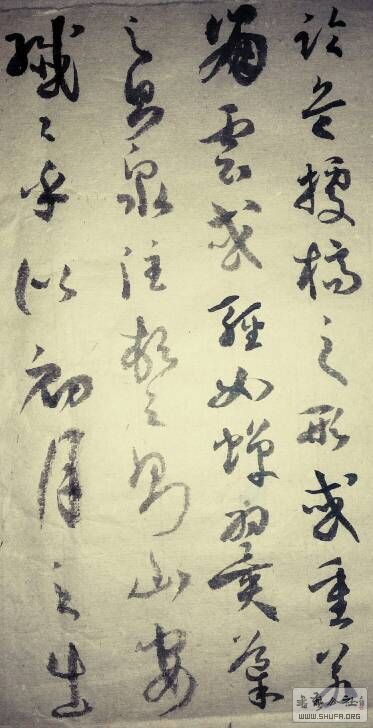 臨危據槁之形或重若
崩雲或輕如蟬翼導
之則泉注頓之則山安
纖〻乎似初月之出
WWW.SHUFA.ORG